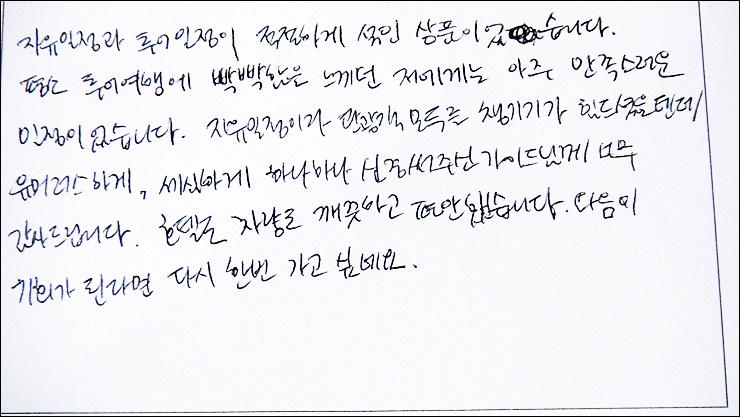 자유일정과 투어일정이 적절하게 섞인 상품이었습니다.
평소 투어여행에 빡빡함을 느끼던 저에게는 아주 만족스러운
일정이었습니다. 자유일정이라 관광객 모두를 챙기기가 힘드셨을텐데
유머러스하게, 세심하게 하나하나 신경써주신 가이드님께 너무
감사드립니다. 호텔도 차량도 깨끗하고 편안했습니다. 다음에
기회가 된다면 다시 한번 가고 싶네요.